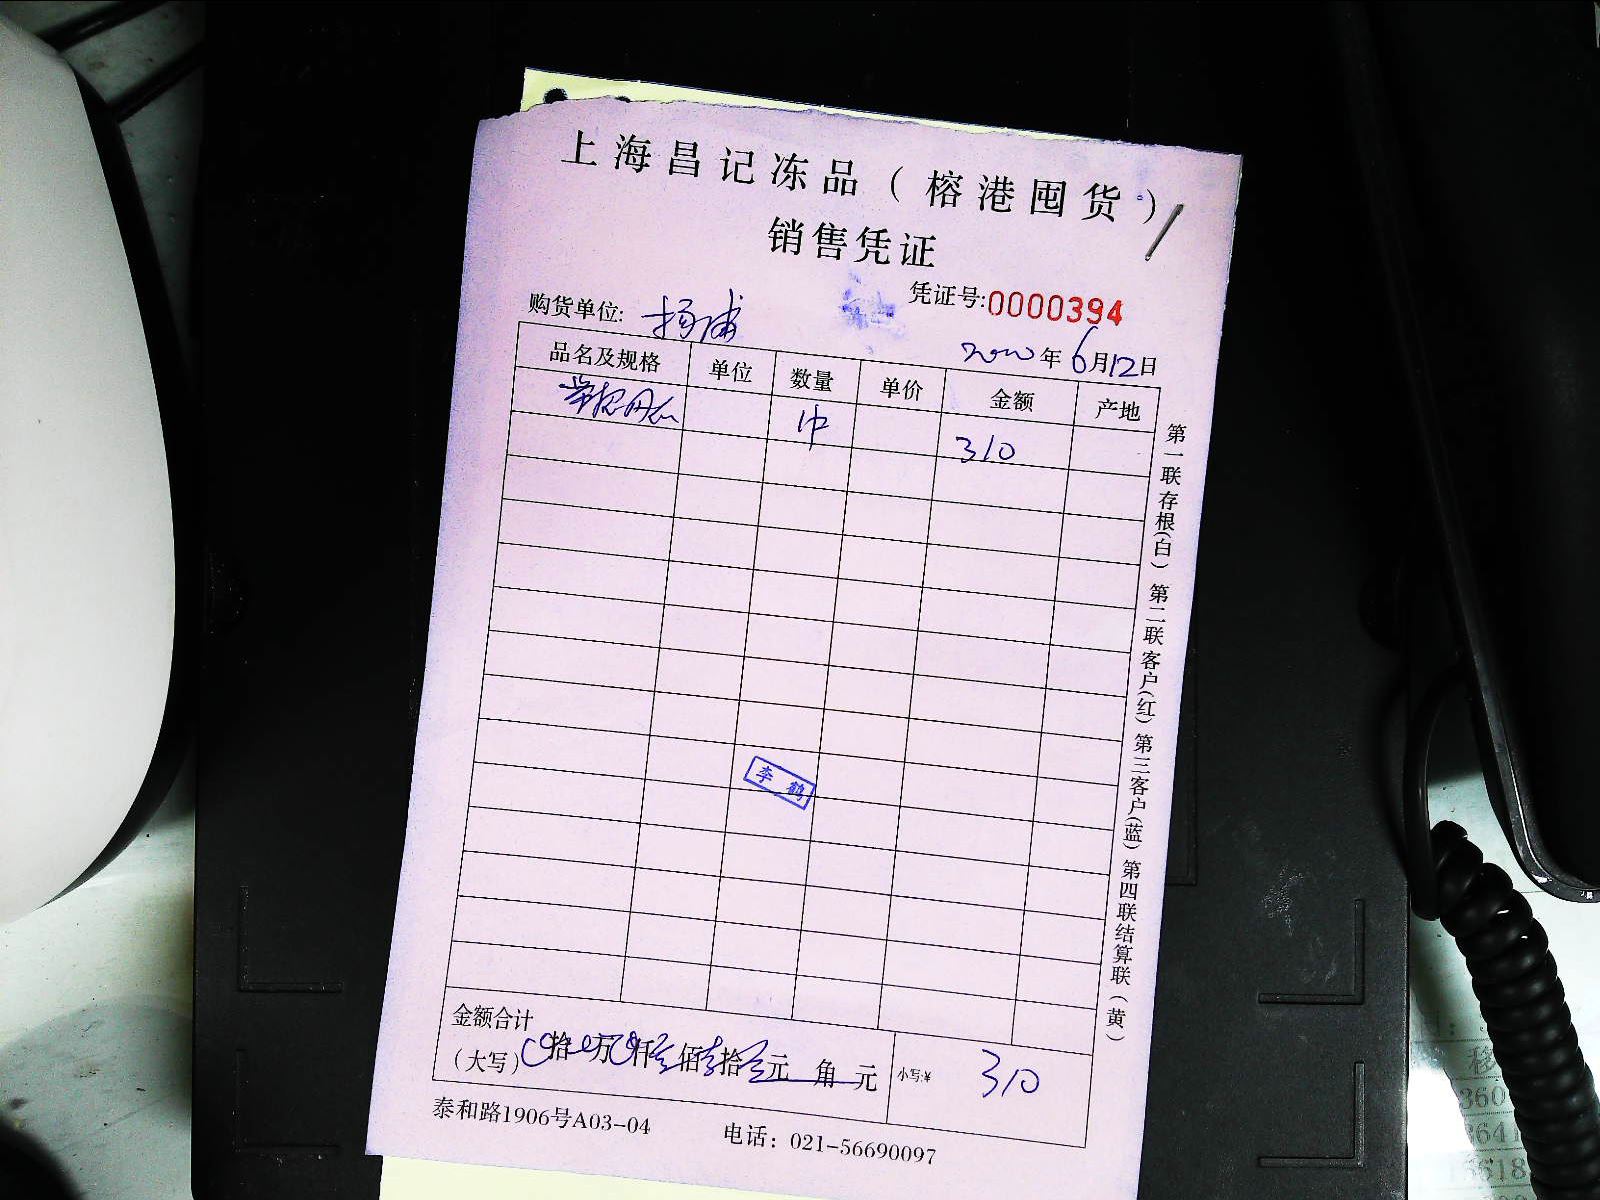 上海昌记冻品（榕港囤货）
销售凭证
凭证号:0000394
购货单位: 杨浦
2020年6月12日
品名及规格 单位 数量 单价 金额 产地
1件 310
李鹤
金额合计
（大写） 拾 万 仟 佰 拾 元 角 元 小写:¥ 310
泰和路1906号A03-04 电话：021-56690097
第一联存根(白) 第二联客户(红) 第三客户(蓝) 第四联结算联(黄)